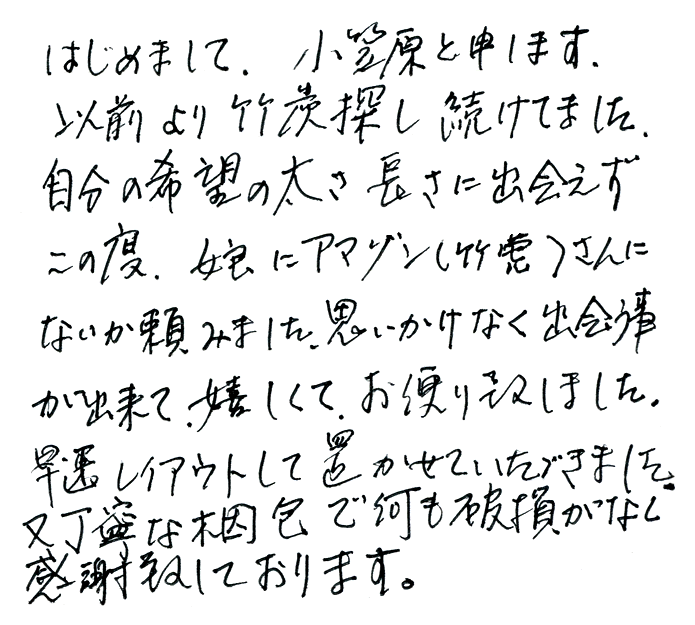 はじめまして、小笠原と申します、
以前より竹炭探し続けてました、
自分の希望の太さ長さに出会えず
この度、娘にアマゾン(竹虎)さんに
ないか頼みました、思いかけなく出会う事
が出来て、嬉しくて、お便り致しました。
早速レイアウトして置かせていただきました。
又丁寧な梱包で何も破損がなく
感謝致しております。